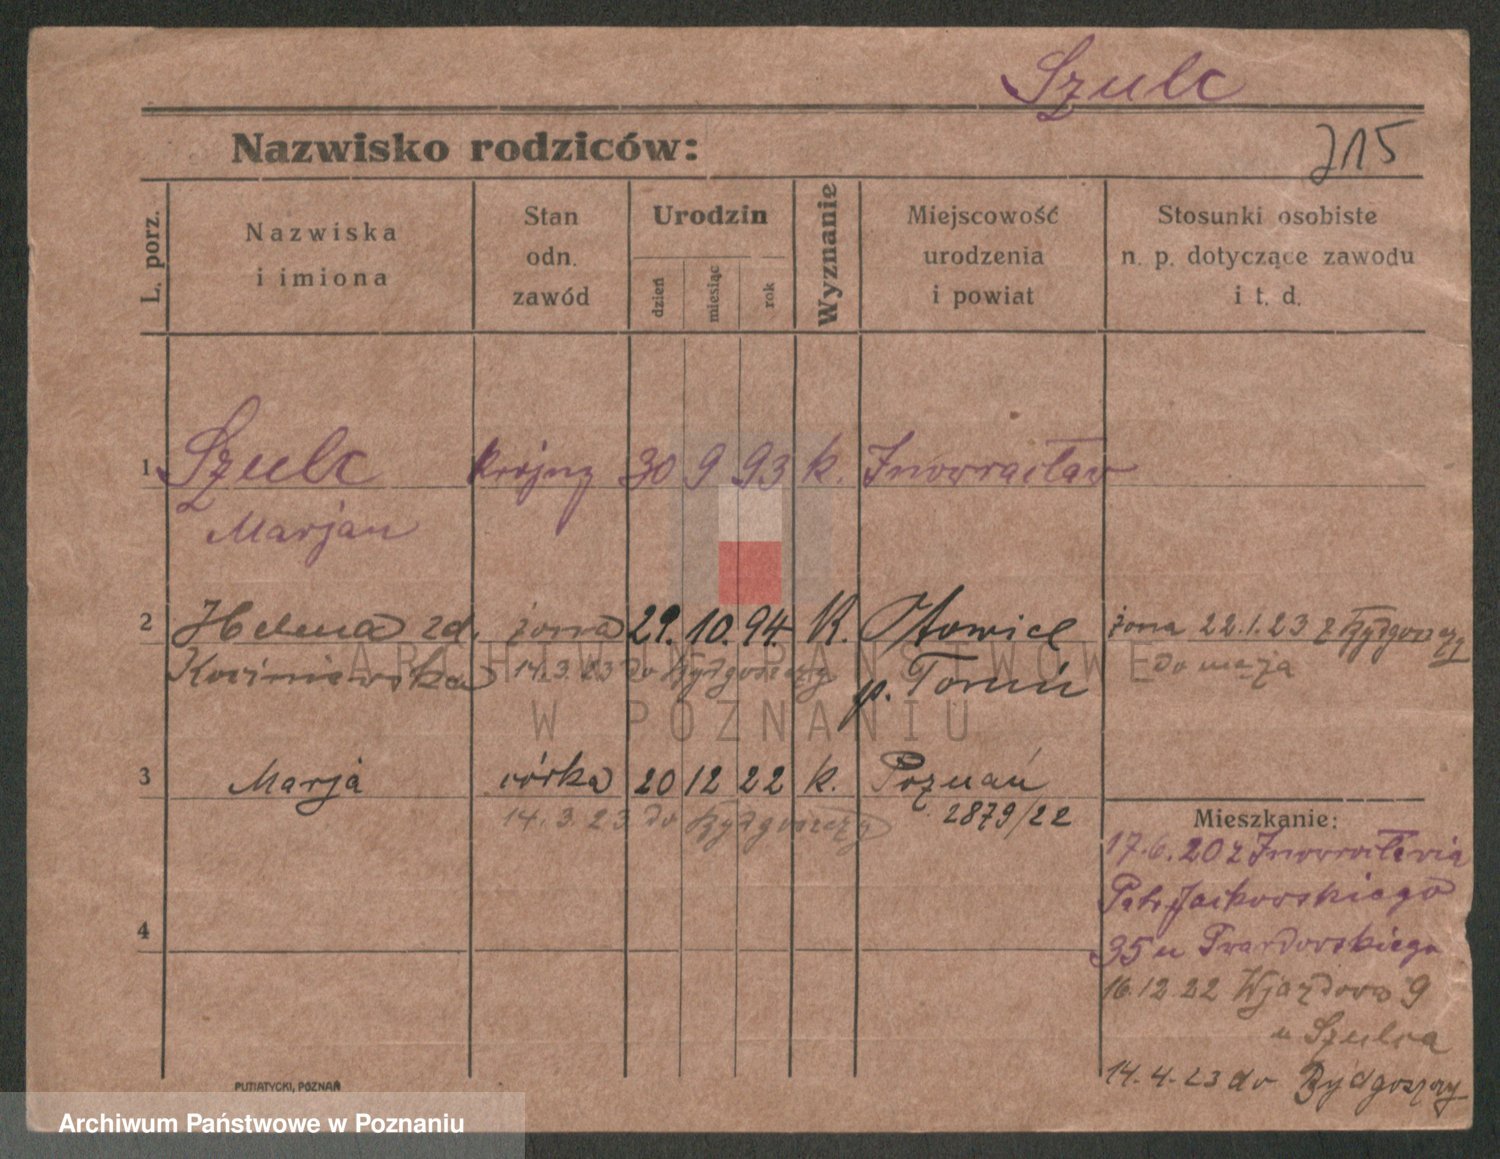 Szulc
Nazwisko rodziców:
715
L. porz.
Nazwiska
i imiona
Stan
odn.
zawód
Urodzin
dzień
miesiąc
rok
Wyznanie
Miejscowość
urodzenia
i powiat
Stosunki osobiste
n. p. dotyczące zawodu
i t. d.
1 Szulc 30 9 93 k. Inowrocław
Marjan
2 Helena zd. żona 29. 10. 94. k. żona 22.1.23 z Bydgoszczy
14.3.23 do Bydgoszczy do męża
p. Toruń
3 Marja córka 20 12 22 k. Poznań
14.3.23 do Bydgoszczy 2879/22
Mieszkanie:
17.6.20 z Inowrocławia
Patr. Jackowskiego
35 u Twardowskiego
16.12.22 Wjazdowa 9
u Szulca
14.4.23 do Bydgoszczy
4
PUTIATYCKI, POZNAŃ
ARCHIWUM PAŃSTWOWE
W POZNANIU
Archiwum Państwowe w Poznaniu